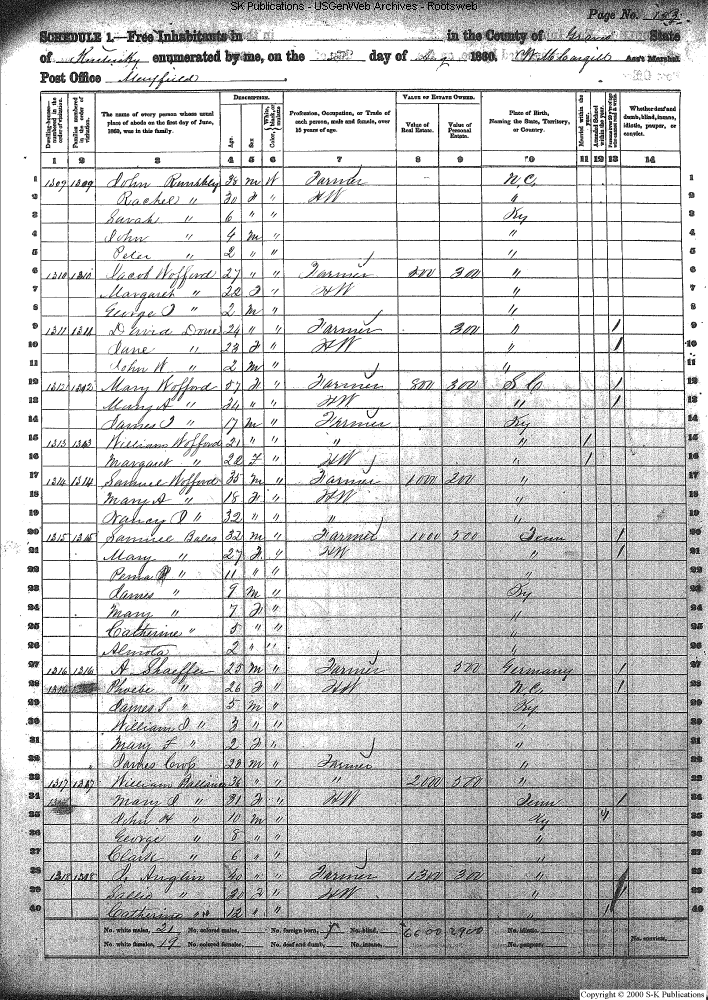 SK Publications - USGenWeb Archives - Rootsweb
Page No. 153
SCHEDULE 1.—Free Inhabitants in in the County of State
of Kentucky enumerated by me, on the day of Aug 1860. Ass't Marshal.
Post Office Mayfield
Dwelling-houses—numbered in the order of visitation.
Families numbered in the order of visitation.
The name of every person whose usual place of abode on the first day of June, 1860, was in this family.
DESCRIPTION.
Age.
Sex.
Color, White, black, or mulatto.
Profession, Occupation, or Trade of each person, male and female, over 15 years of age.
VALUE OF ESTATE OWNED.
Value of Real Estate.
Value of Personal Estate.
Place of Birth, Naming the State, Territory, or Country.
Married within the year.
Attended School within the year.
Whether deaf and dumb, blind, insane, idiotic, pauper, or convict.
1 2 3 4 5 6 7 8 9 10 11 12 13 14
1 1309 1309 John 38 m W Farmer N.C. 1
2 Rachel " 30 F " HW " 2
3 Sarah " 6 " " Ky 3
4 John " 4 m " " 4
5 Peter " 2 " " " 5
6 1310 1310 Jacob Wofford 27 " " Farmer 300 " 6
7 Margaret " 22 F " HW " 7
8 George " 2 m " " 8
9 1311 1311 David 24 " " Farmer 300 " / 9
10 Jane " 23 F " HW " / 10
11 John W " 2 m " " 11
12 1312 1312 Mary Wofford 57 F " Farmer 800 300 S C / 12
13 Mary A " 34 " " HW " / 13
14 James " 17 m " Farmer Ky 14
15 1313 1313 William Wofford 21 " " " " / 15
16 Margaret " 22 F " HW " / 16
17 1314 1314 Samuel Wofford 35 m " Farmer 1000 200 " 17
18 Mary A " 18 F " HW " 18
19 Nancy " 32 " " " " 19
20 1315 1315 Samuel Bales 32 m " Farmer 1000 500 Tenn / 20
21 Mary " 27 F " HW " / 21
22 " 11 " " " 22
23 James " 9 m " Ky 23
24 Mary " 7 F " " 24
25 Catherine " 5 " " " 25
26 2 " " " 26
27 1316 1316 A Shaeffer 25 m " Farmer 500 Germany / 27
28 Phoebe " 26 F " HW N.C. / 28
29 James " 5 m " Ky 29
30 William " 3 " " " 30
31 Mary F " 2 F " " 31
32 James 23 m " Farmer " 32
33 1317 1317 William 36 " " " 2000 500 " 33
34 Mary " 31 F " HW Tenn / 34
35 John H " 10 m " Ky 35
36 George " 8 " " " 36
37 Clark " 6 " " " 37
38 1318 1318 Anglin 40 " " Farmer 1300 300 " 38
39 Sallie " 30 F " HW " / 39
40 Catherine " 12 " " " 40
No. white males, 21 No. colored males, No. foreign born, 1 No. blind, 6600 2900 No. idiotic,
No. white females, 19 No. colored females, No. deaf and dumb, No. insane, No. paupers, No. convicts,
Copyright © 2000 S-K Publications